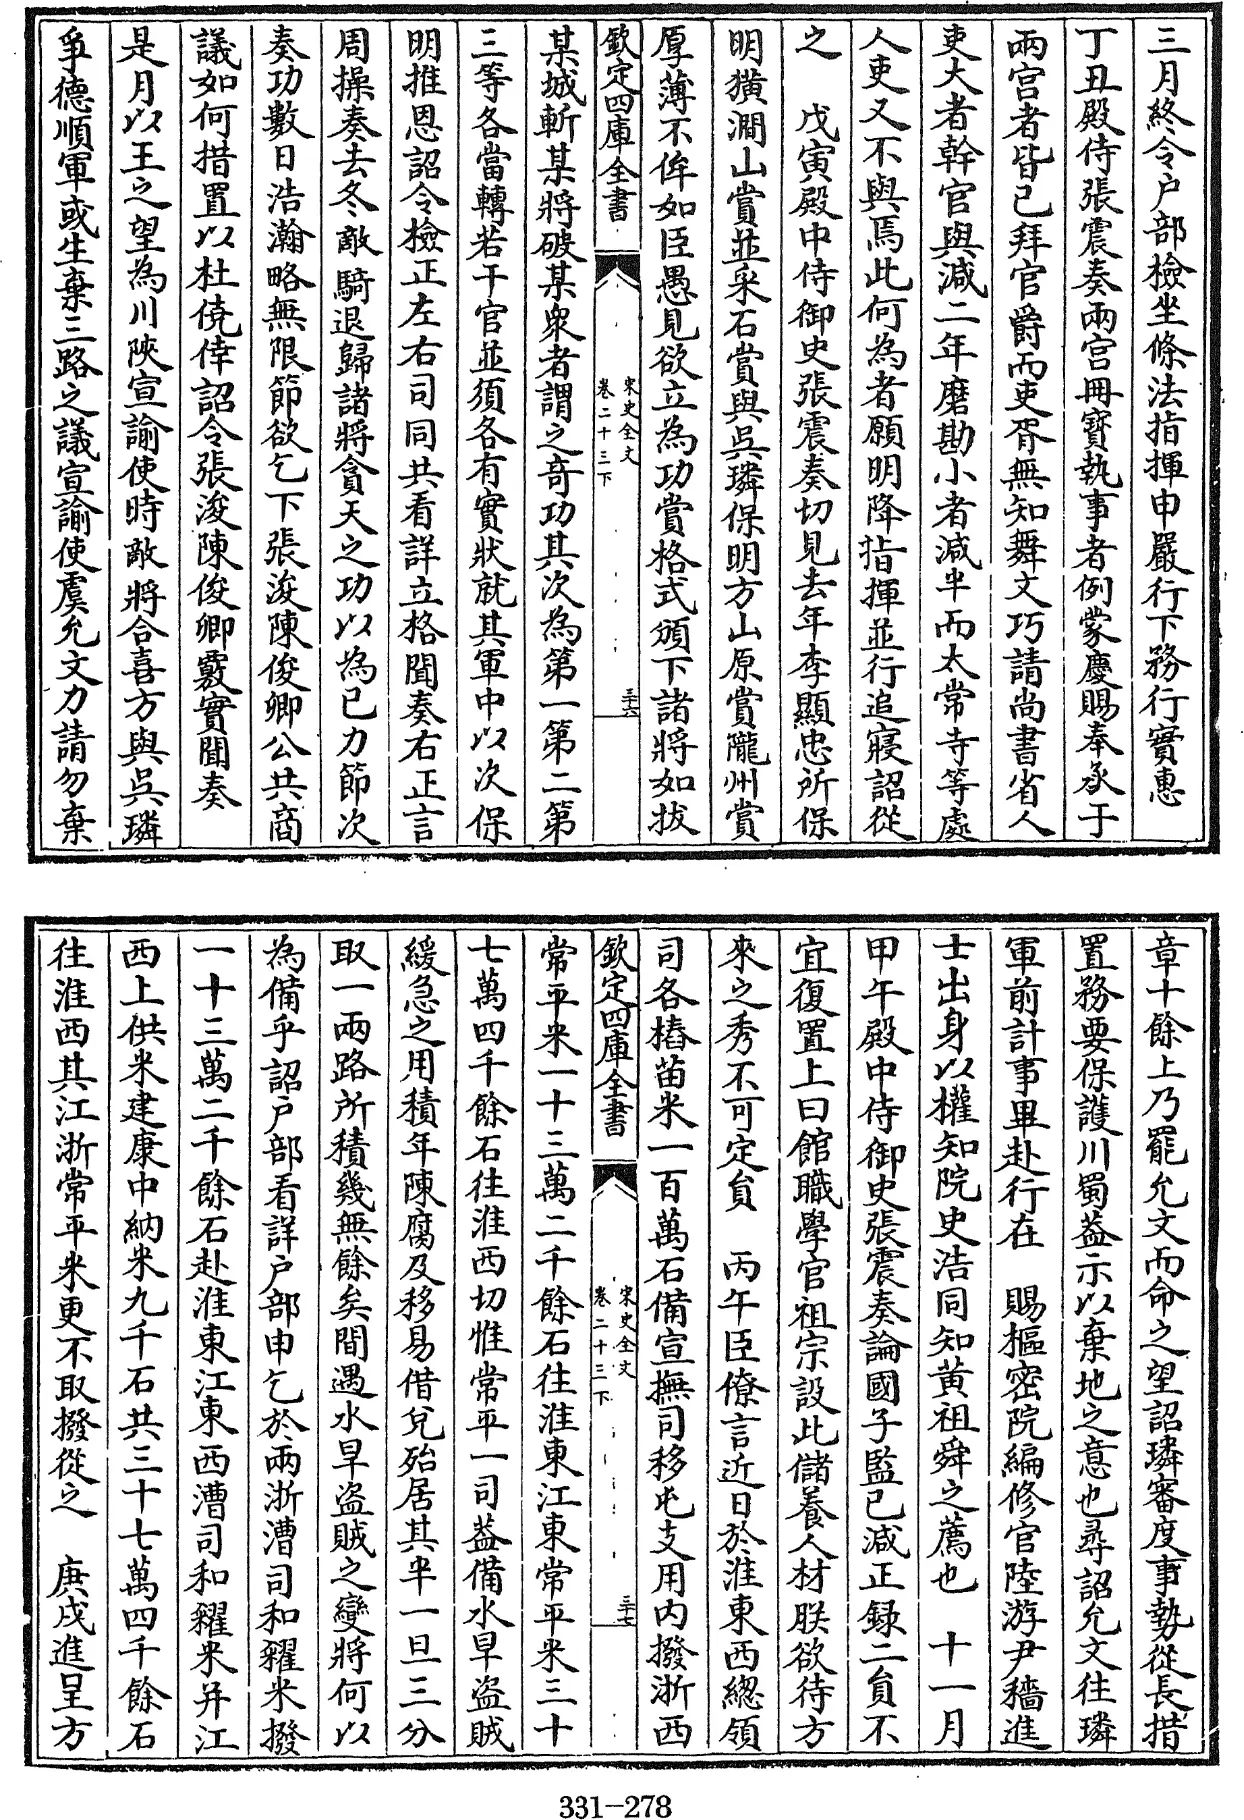 三月終令户部檢坐條法指揮申嚴行下務行實惠
丁丑殿侍張震奏兩宫冊寶執事者例蒙慶賜奉承于
兩宫者皆已拜官爵而吏胥無知舞文巧請尚書省人
吏大者幹官與減二年磨勘小者減半而太常寺等處
人吏又不與焉此何為者願明降指揮並行追寢詔從
之　戊寅殿中侍御史張震奏切見去年李顯忠所保
明獚澗山賞並采石賞與吳璘保明方山原賞隴州賞
厚薄不侔如臣愚見欲立為功賞格式頒下諸將如拔
欽定四庫全書
宋史全文
卷二十三下
三十六
某城斬某將破某衆者謂之奇功其次為第一第二第
三等各當轉若干官並須各有實狀就其軍中以次保
明推恩詔令檢正左右司同共看詳立格聞奏右正言
周操奏去冬敵騎退歸諸將貪天之功以為已力節次
奏功數日浩瀚略無限節欲乞下張浚陳俊卿公共商
議如何措置以杜僥倖詔令張浚陳俊卿覈實聞奏
是月以王之望為川陝宣諭使時敵將合喜方與吳璘
爭德順軍或生棄三路之議宣諭使虞允文力請勿棄
章十餘上乃罷允文而命之望詔璘審度事勢從長措
置務要保護川蜀葢示以棄地之意也尋詔允文往璘
軍前計事畢赴行在　賜樞密院編修官陸游尹穡進
士出身以權知院史浩同知黄祖舜之薦也　十一月
甲午殿中侍御史張震奏論國子監已減正録二員不
宜復置上曰館職學官祖宗設此儲養人材朕欲待方
來之秀不可定員　丙午臣僚言近日於淮東西總領
司各樁苗米一百萬石備宣撫司移屯支用内撥浙西
欽定四庫全書
宋史全文
卷二十三下
三十七
常平米一十三萬二千餘石往淮東江東常平米三十
七萬四千餘石往淮西切惟常平一司葢備水旱盗賊
緩急之用積年陳腐及移易借兌殆居其半一旦三分
取一兩路所積幾無餘矣間遇水旱盗賊之變將何以
為備乎詔户部看詳户部申乞於兩浙漕司和糴米撥
一十三萬二千餘石赴淮東江東西漕司和糴米并江
西上供米建康中納米九千石共三十七萬四千餘石
往淮西其江浙常平米更不取撥從之　庚戌進呈方
331-278